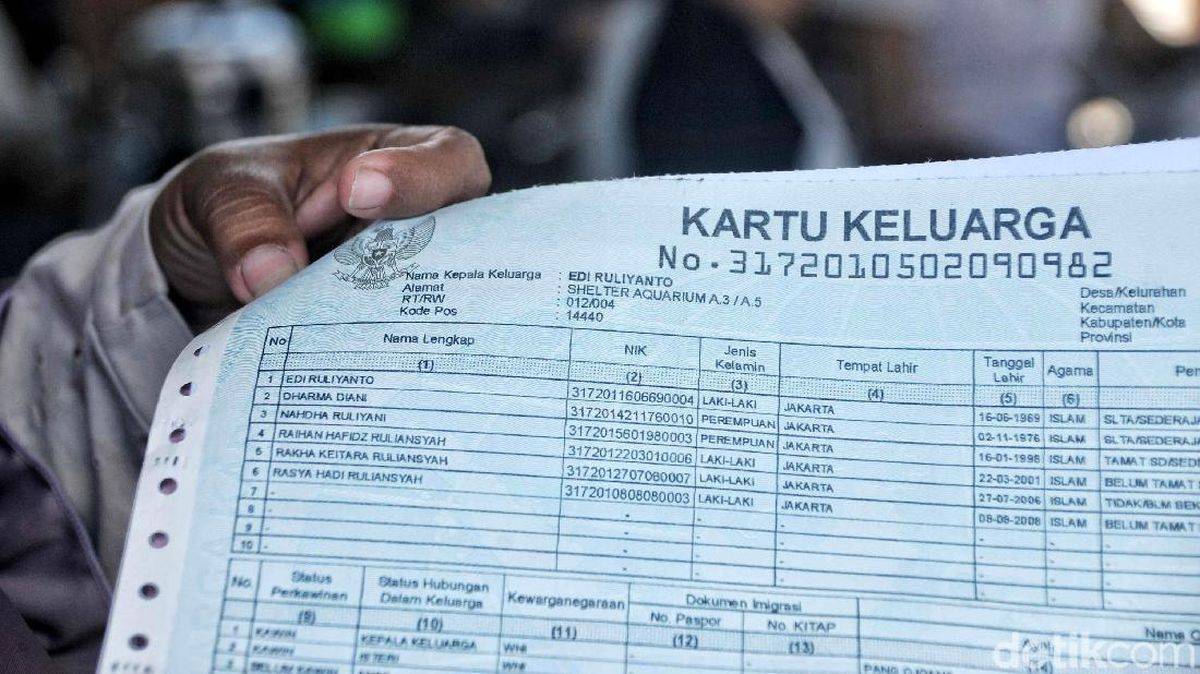 KARTU KELUARGA
No. 3172010502090982
Nama Kepala Keluarga : EDI RULIYANTO
Alamat : SHELTER AQUARIUM A.3 / A.5
RT/RW : 012/004
Kode Pos : 14440
Desa/Kelurahan
Kecamatan
Kabupaten/Kota
Provinsi
No Nama Lengkap NIK Jenis Kelamin Tempat Lahir Tanggal Lahir Agama
(1) (2) (3) (4) (5) (6)
1 EDI RULIYANTO 3172011606690004 LAKI-LAKI JAKARTA 16-06-1969 ISLAM SLTA/SEDERAJA
2 DHARMA DIANI 3172014211760010 PEREMPUAN JAKARTA 02-11-1976 ISLAM SLTA/SEDERAJA
3 NAHDHA RULIYANI 3172015601980003 PEREMPUAN JAKARTA 16-01-1998 ISLAM TAMAT SD/SEDERA
4 RAIHAN HAFIDZ RULIANSYAH 3172012203010006 LAKI-LAKI JAKARTA 22-03-2001 ISLAM BELUM TAMAT
5 RAKHA KEITARA RULIANSYAH 3172012707060007 LAKI-LAKI JAKARTA 27-07-2006 ISLAM TIDAK/BLM
6 RASYA HADI RULIANSYAH 3172010808080003 LAKI-LAKI JAKARTA 08-08-2008 ISLAM BELUM TAMAT
7 -
8 -
9 -
10 -
No. Status Perkawinan Status Hubungan Dalam Keluarga Kewarganegaraan Dokumen Imigrasi
No. Paspor No. KITAP Nama
(9) (10) (11) (12) (13)
1 KAWIN KEPALA KELUARGA WNI
2 KAWIN ISTERI WNI
3 BELUM KAWIN
detikcom